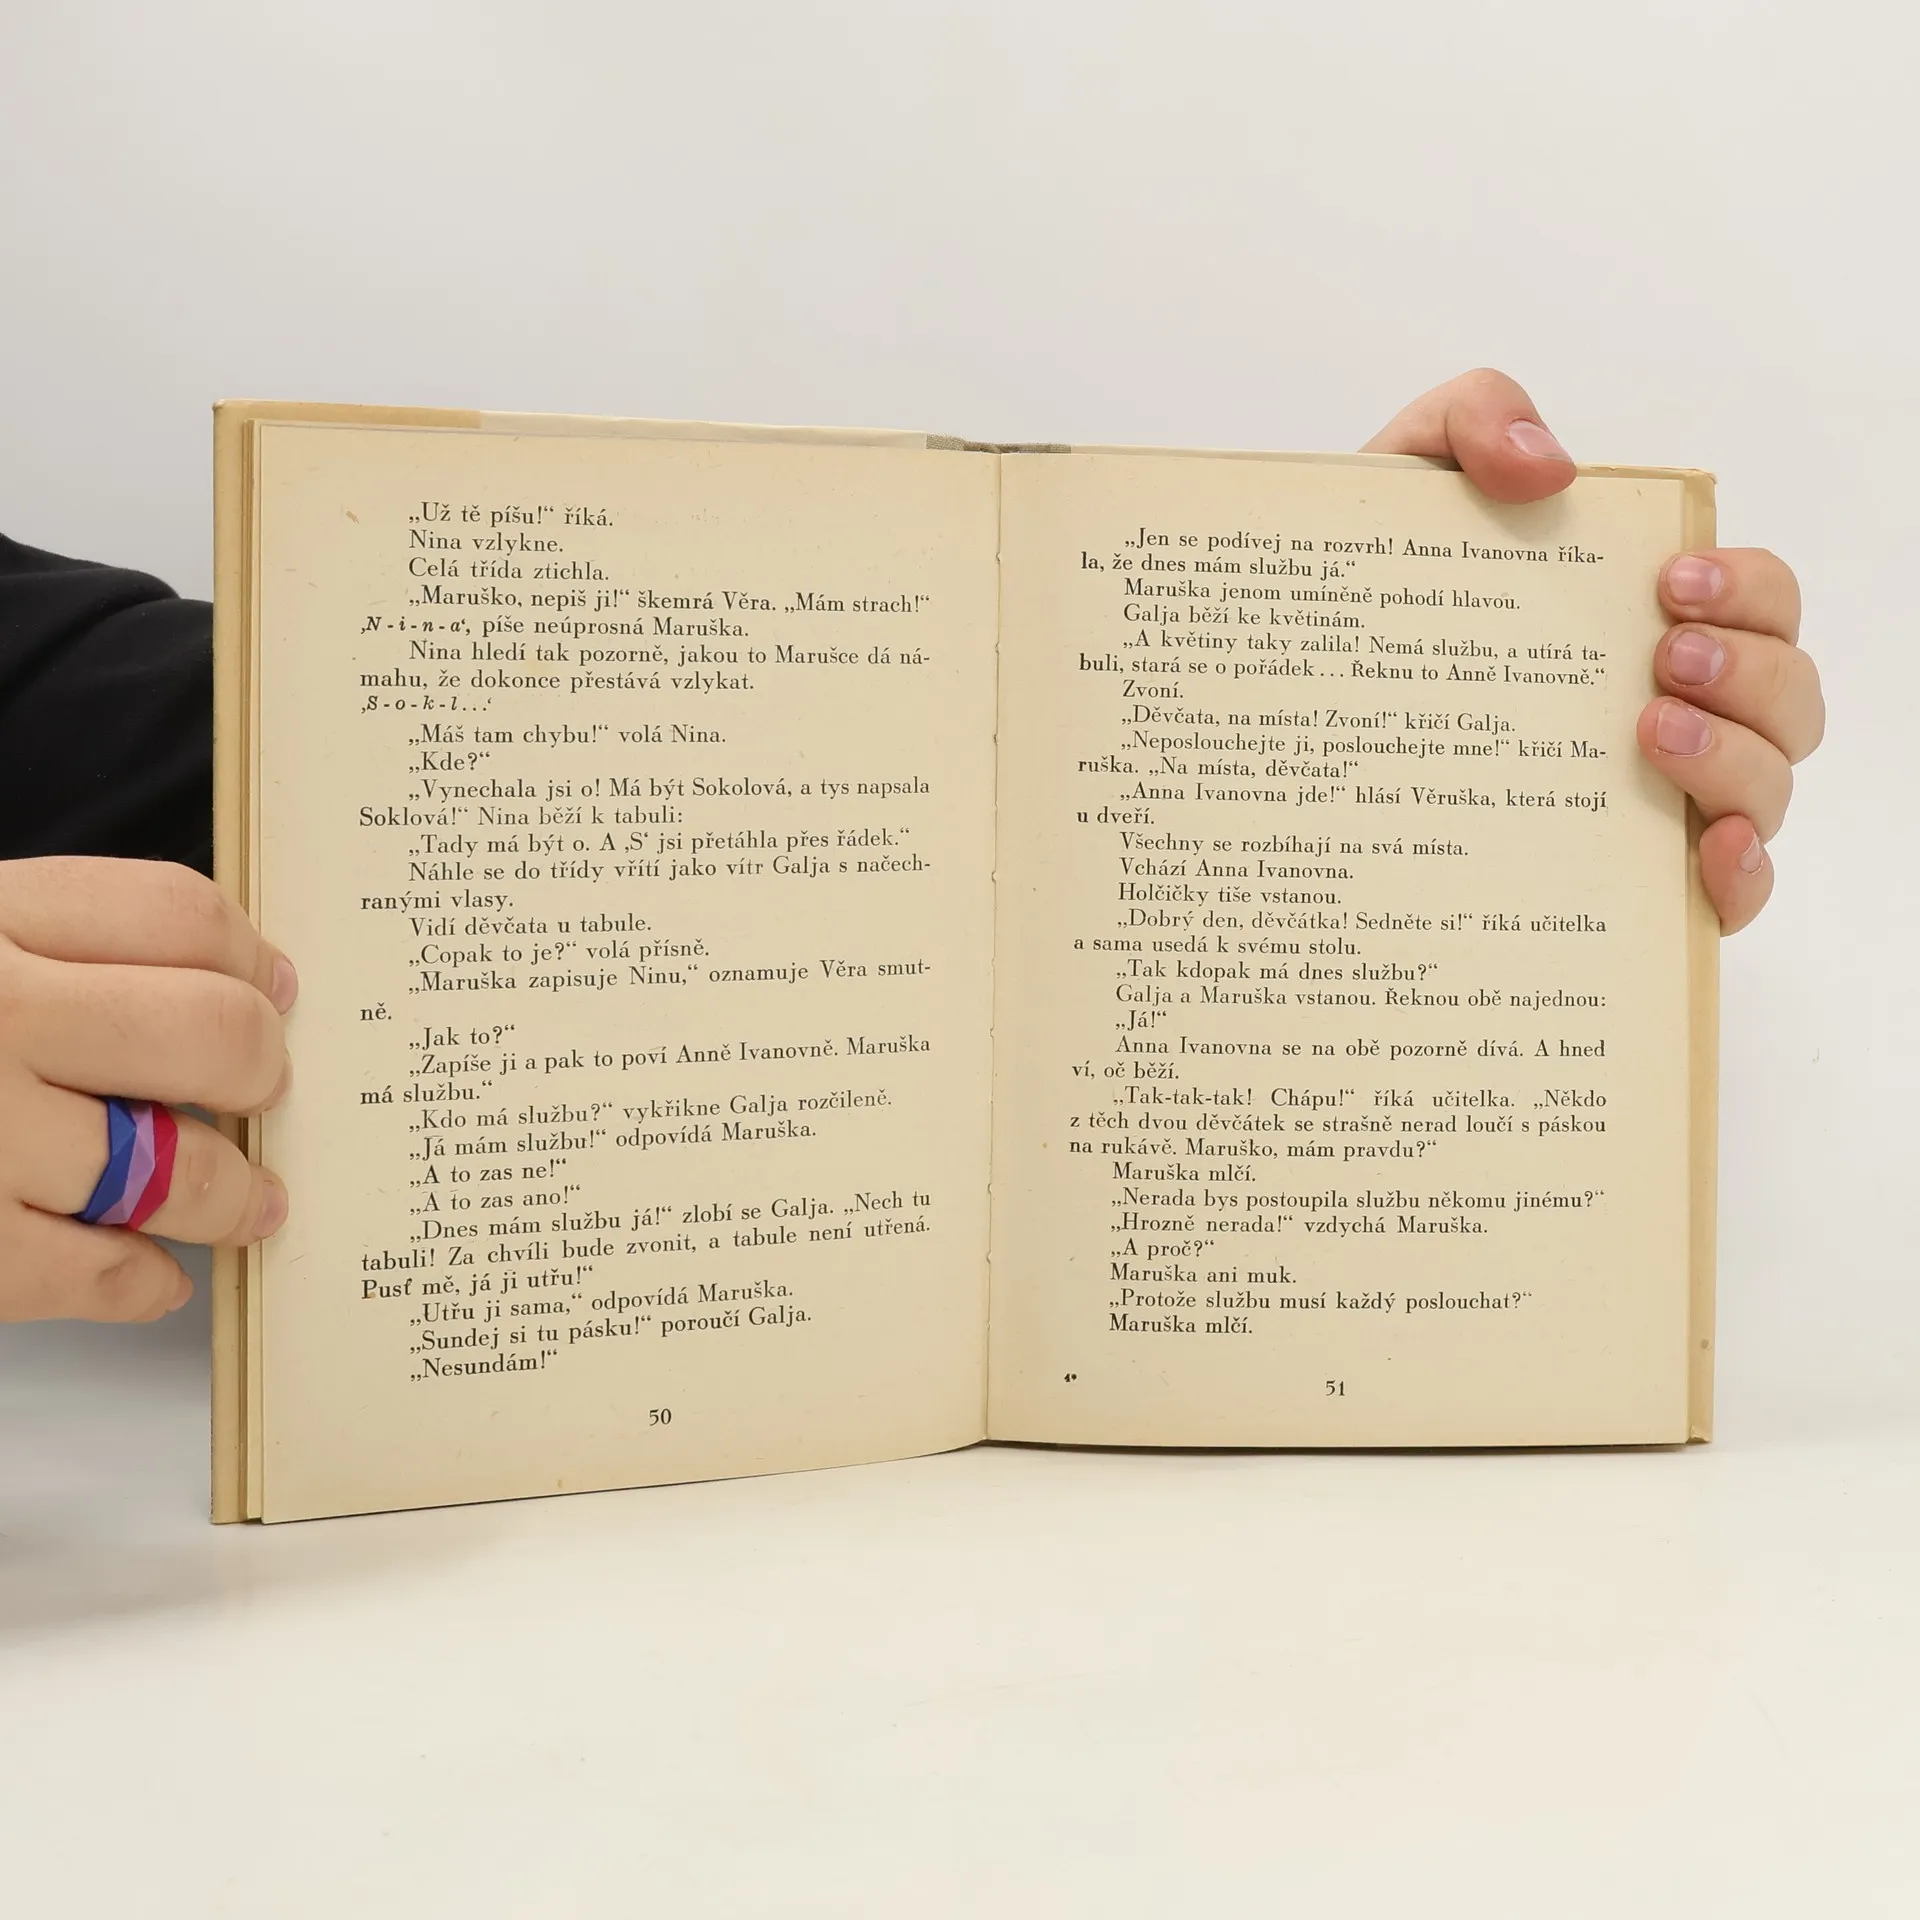 „Už tě píšu!“ říká.
Nina vzlykne.
Celá třída ztichla.
„Maruško, nepiš ji!“ škemrá Věra. „Mám strach!“
‚N - i - n - a‘, píše neúprosná Maruška.
Nina hledí tak pozorně, jakou to Marušce dá ná-
mahu, že dokonce přestává vzlykat.
‚S - o - k - l . . .‘
„Máš tam chybu!“ volá Nina.
„Kde?“
„Vynechala jsi o! Má být Sokolová, a tys napsala
Soklová!“ Nina běží k tabuli:
„Tady má být o. A ‚S‘ jsi přetáhla přes řádek.“
Náhle se do třídy vřítí jako vítr Galja s načech-
ranými vlasy.
Vidí děvčata u tabule.
„Copak to je?“ volá přísně.
„Maruška zapisuje Ninu,“ oznamuje Věra smut-
ně.
„Jak to?“
„Zapíše ji a pak to poví Anně Ivanovně. Maruška
má službu.“
„Kdo má službu?“ vykřikne Galja rozčileně.
„Já mám službu!“ odpovídá Maruška.
„A to zas ne!“
„A to zas ano!“
„Dnes mám službu já!“ zlobí se Galja. „Nech tu
tabuli! Za chvíli bude zvonit, a tabule není utřená.
Pusť mě, já ji utřu!“
„Utřu ji sama,“ odpovídá Maruška.
„Sundej si tu pásku!“ poroučí Galja.
„Nesundám!“
50
„Jen se podívej na rozvrh! Anna Ivanovna říka-
la, že dnes mám službu já.“
Maruška jenom umíněně pohodí hlavou.
Galja běží ke květinám.
„A květiny taky zalila! Nemá službu, a utírá ta-
buli, stará se o pořádek . . . Řeknu to Anně Ivanovně.“
Zvoní.
„Děvčata, na místa! Zvoní!“ křičí Galja.
„Neposlouchejte ji, poslouchejte mne!“ křičí Ma-
ruška. „Na místa, děvčata!“
„Anna Ivanovna jde!“ hlásí Věruška, která stojí
u dveří.
Všechny se rozbíhají na svá místa.
Vchází Anna Ivanovna.
Holčičky tiše vstanou.
„Dobrý den, děvčátka! Sedněte si!“ říká učitelka
a sama usedá k svému stolu.
„Tak kdopak má dnes službu?“
Galja a Maruška vstanou. Řeknou obě najednou:
„Já!“
Anna Ivanovna se na obě pozorně dívá. A hned
ví, oč běží.
„Tak-tak-tak! Chápu!“ říká učitelka. „Někdo
z těch dvou děvčátek se strašně nerad loučí s páskou
na rukávě. Maruško, mám pravdu?“
Maruška mlčí.
„Nerada bys postoupila službu někomu jinému?“
„Hrozně nerada!“ vzdychá Maruška.
„A proč?“
Maruška ani muk.
„Protože službu musí každý poslouchat?“
Maruška mlčí.
4*
51